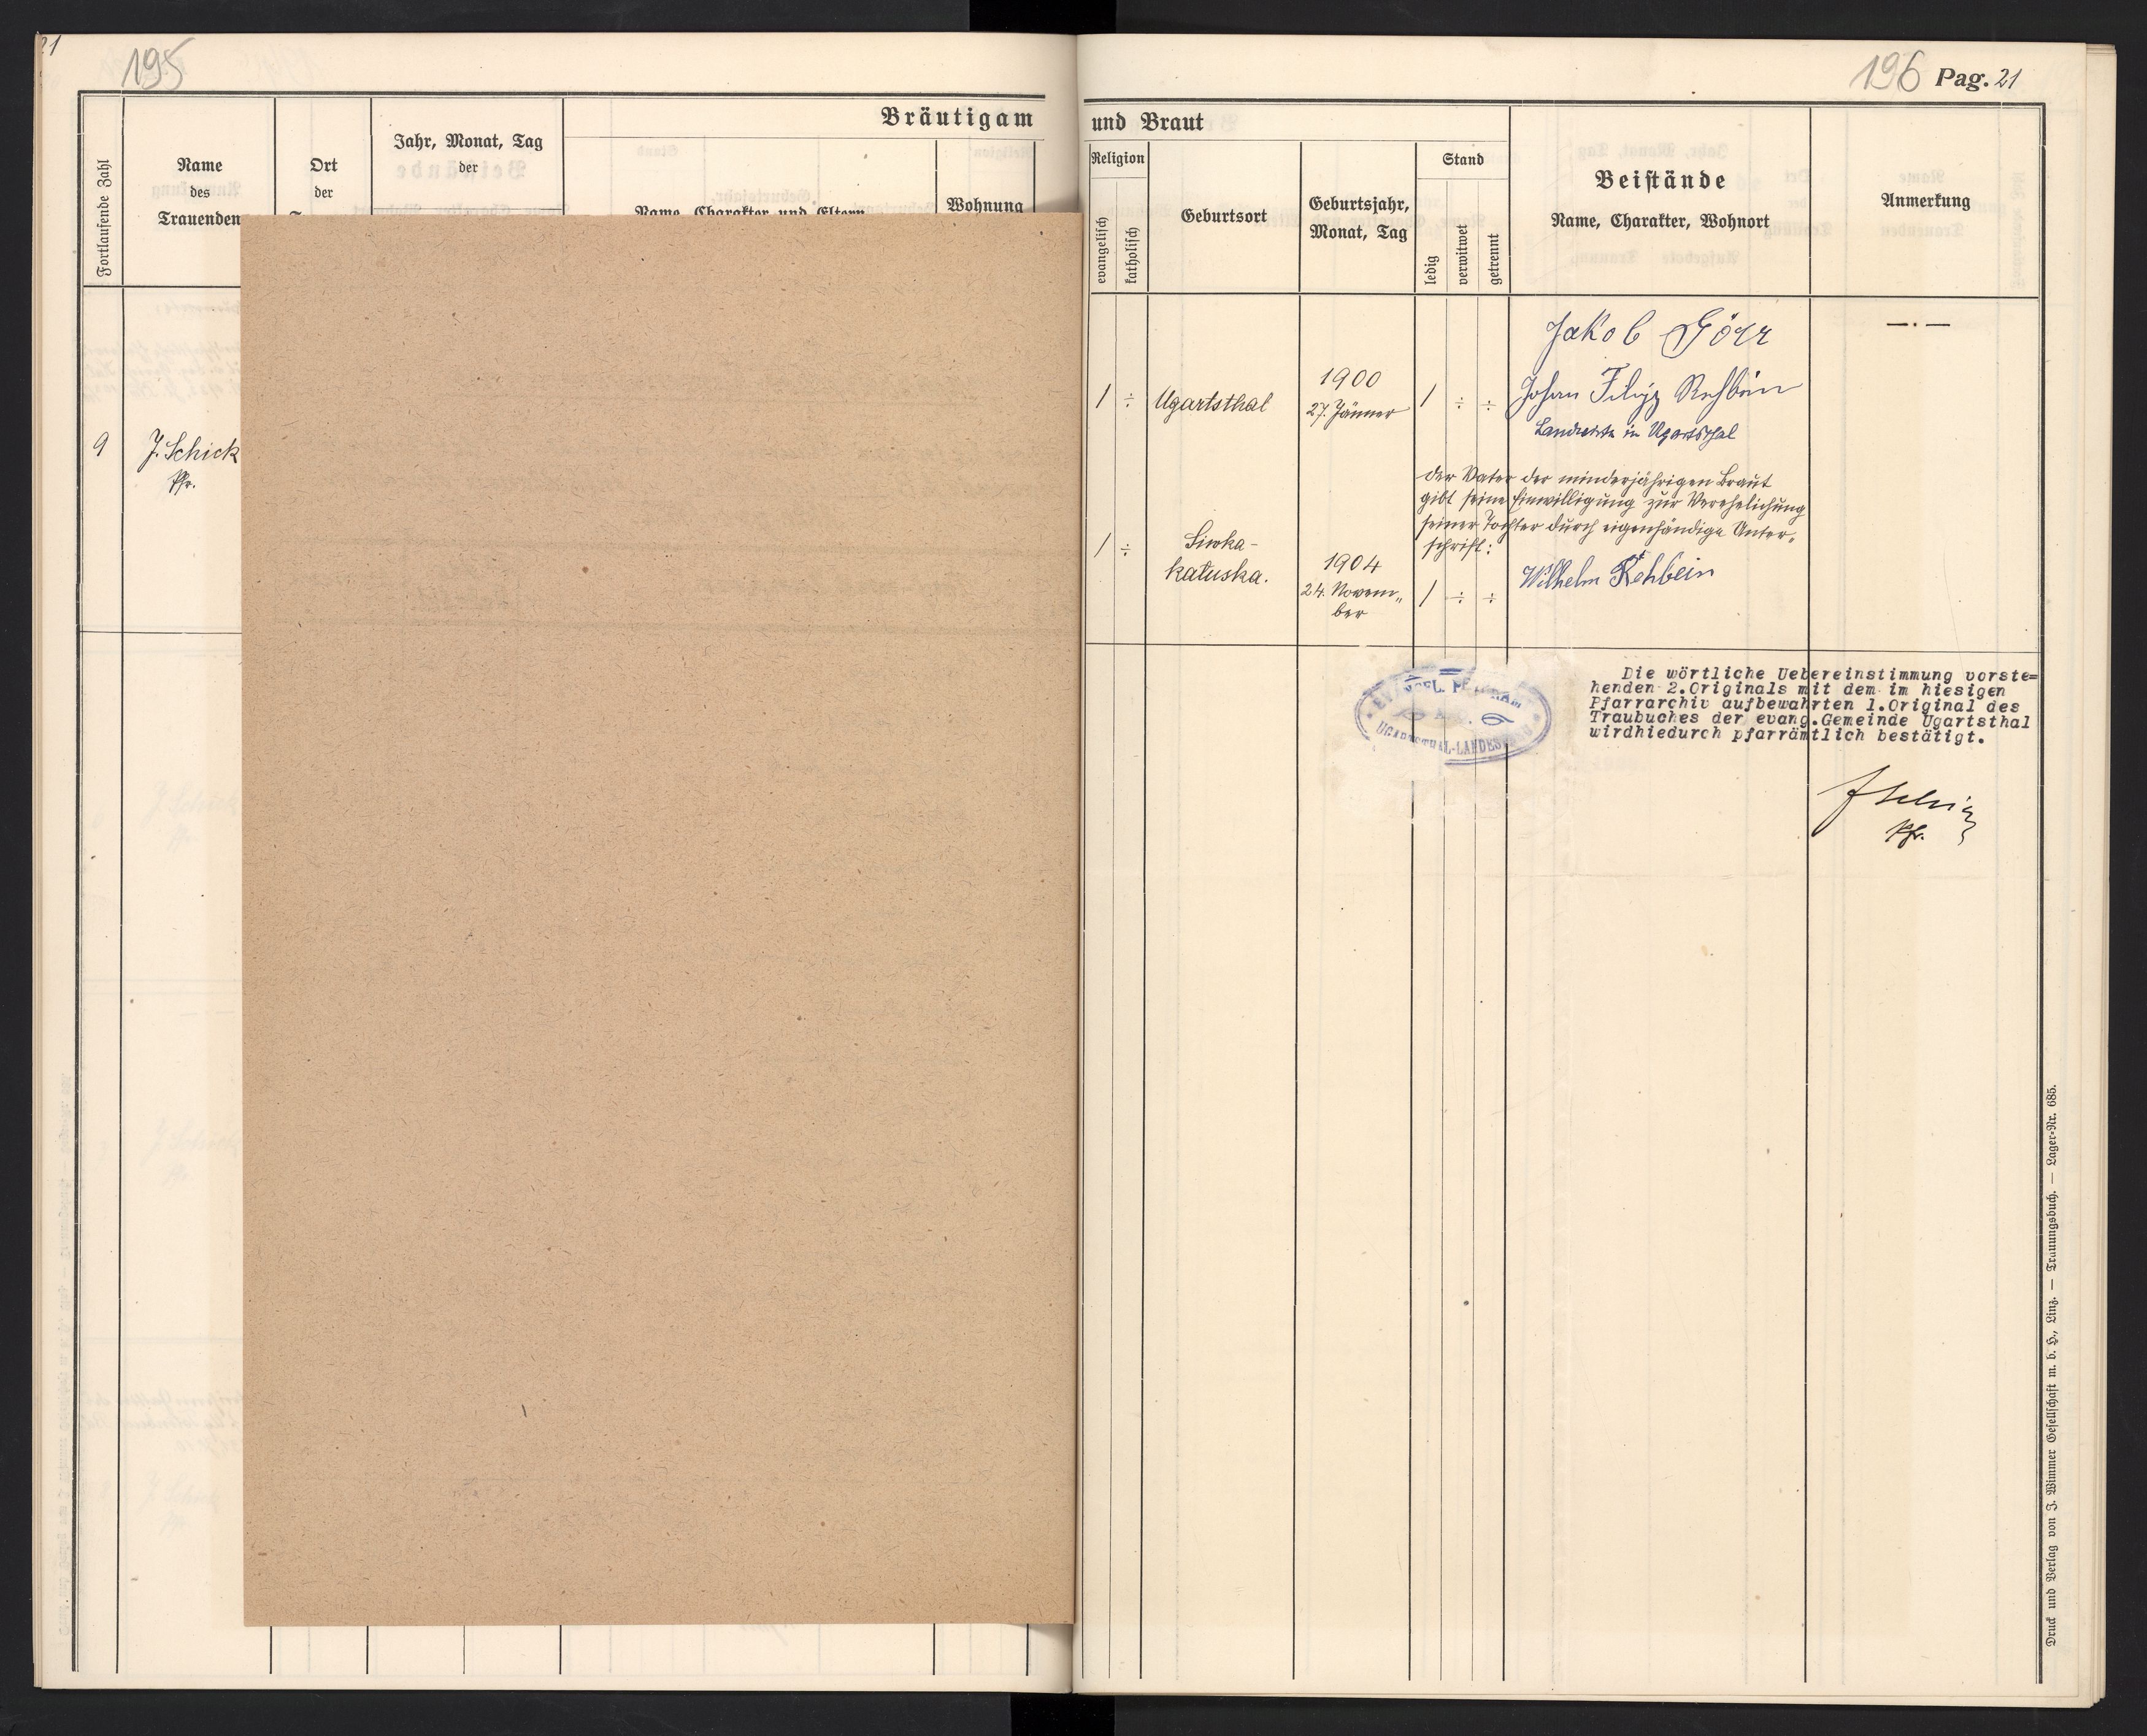 21
195
Bräutigam
Fortlaufende Zahl
Name
des
Trauenden
Ort
der
Jahr, Monat, Tag
der
Name, Charakter und Eltern
Wohnung
9
J. Schick
Pfr.
196 Pag. 21
und Braut
Religion
evangelisch
katholisch
Geburtsort
Geburtsjahr,
Monat, Tag
Stand
ledig
verwitwet
getrennt
Beistände
Name, Charakter, Wohnort
Anmerkung
Jakob Görr
—.—
1 ÷ Ugartsthal
1900
27. Jänner
1 ÷ ÷
Johan Filipp Rehbein
Landwirte in Ugartsthal
der Vater der minderjährigen Braut
gibt seine Einwilligung zur Verehelichung
seiner Tochter durch eigenhändige Unter-
schrift:
1 ÷ Siwka-
katuska.
1904
24. Novem-
ber
1 ÷ ÷
Wilhelm Rehbein
EVANGEL. PFARRAMT
UGARTSTHAL-LANDESTREU
Die wörtliche Uebereinstimmung vorste=
henden 2.Originals mit dem im hiesigen
Pfarrarchiv aufbewahrten 1.Original des
Traubuches der evang.Gemeinde Ugartsthal
wirdhiedurch pfarrämtlich bestätigt.
Pfr.
Druck und Verlag von J. Wimmer Gesellschaft m. b. H., Linz. — Trauungsbuch. — Lager-Nr. 685.